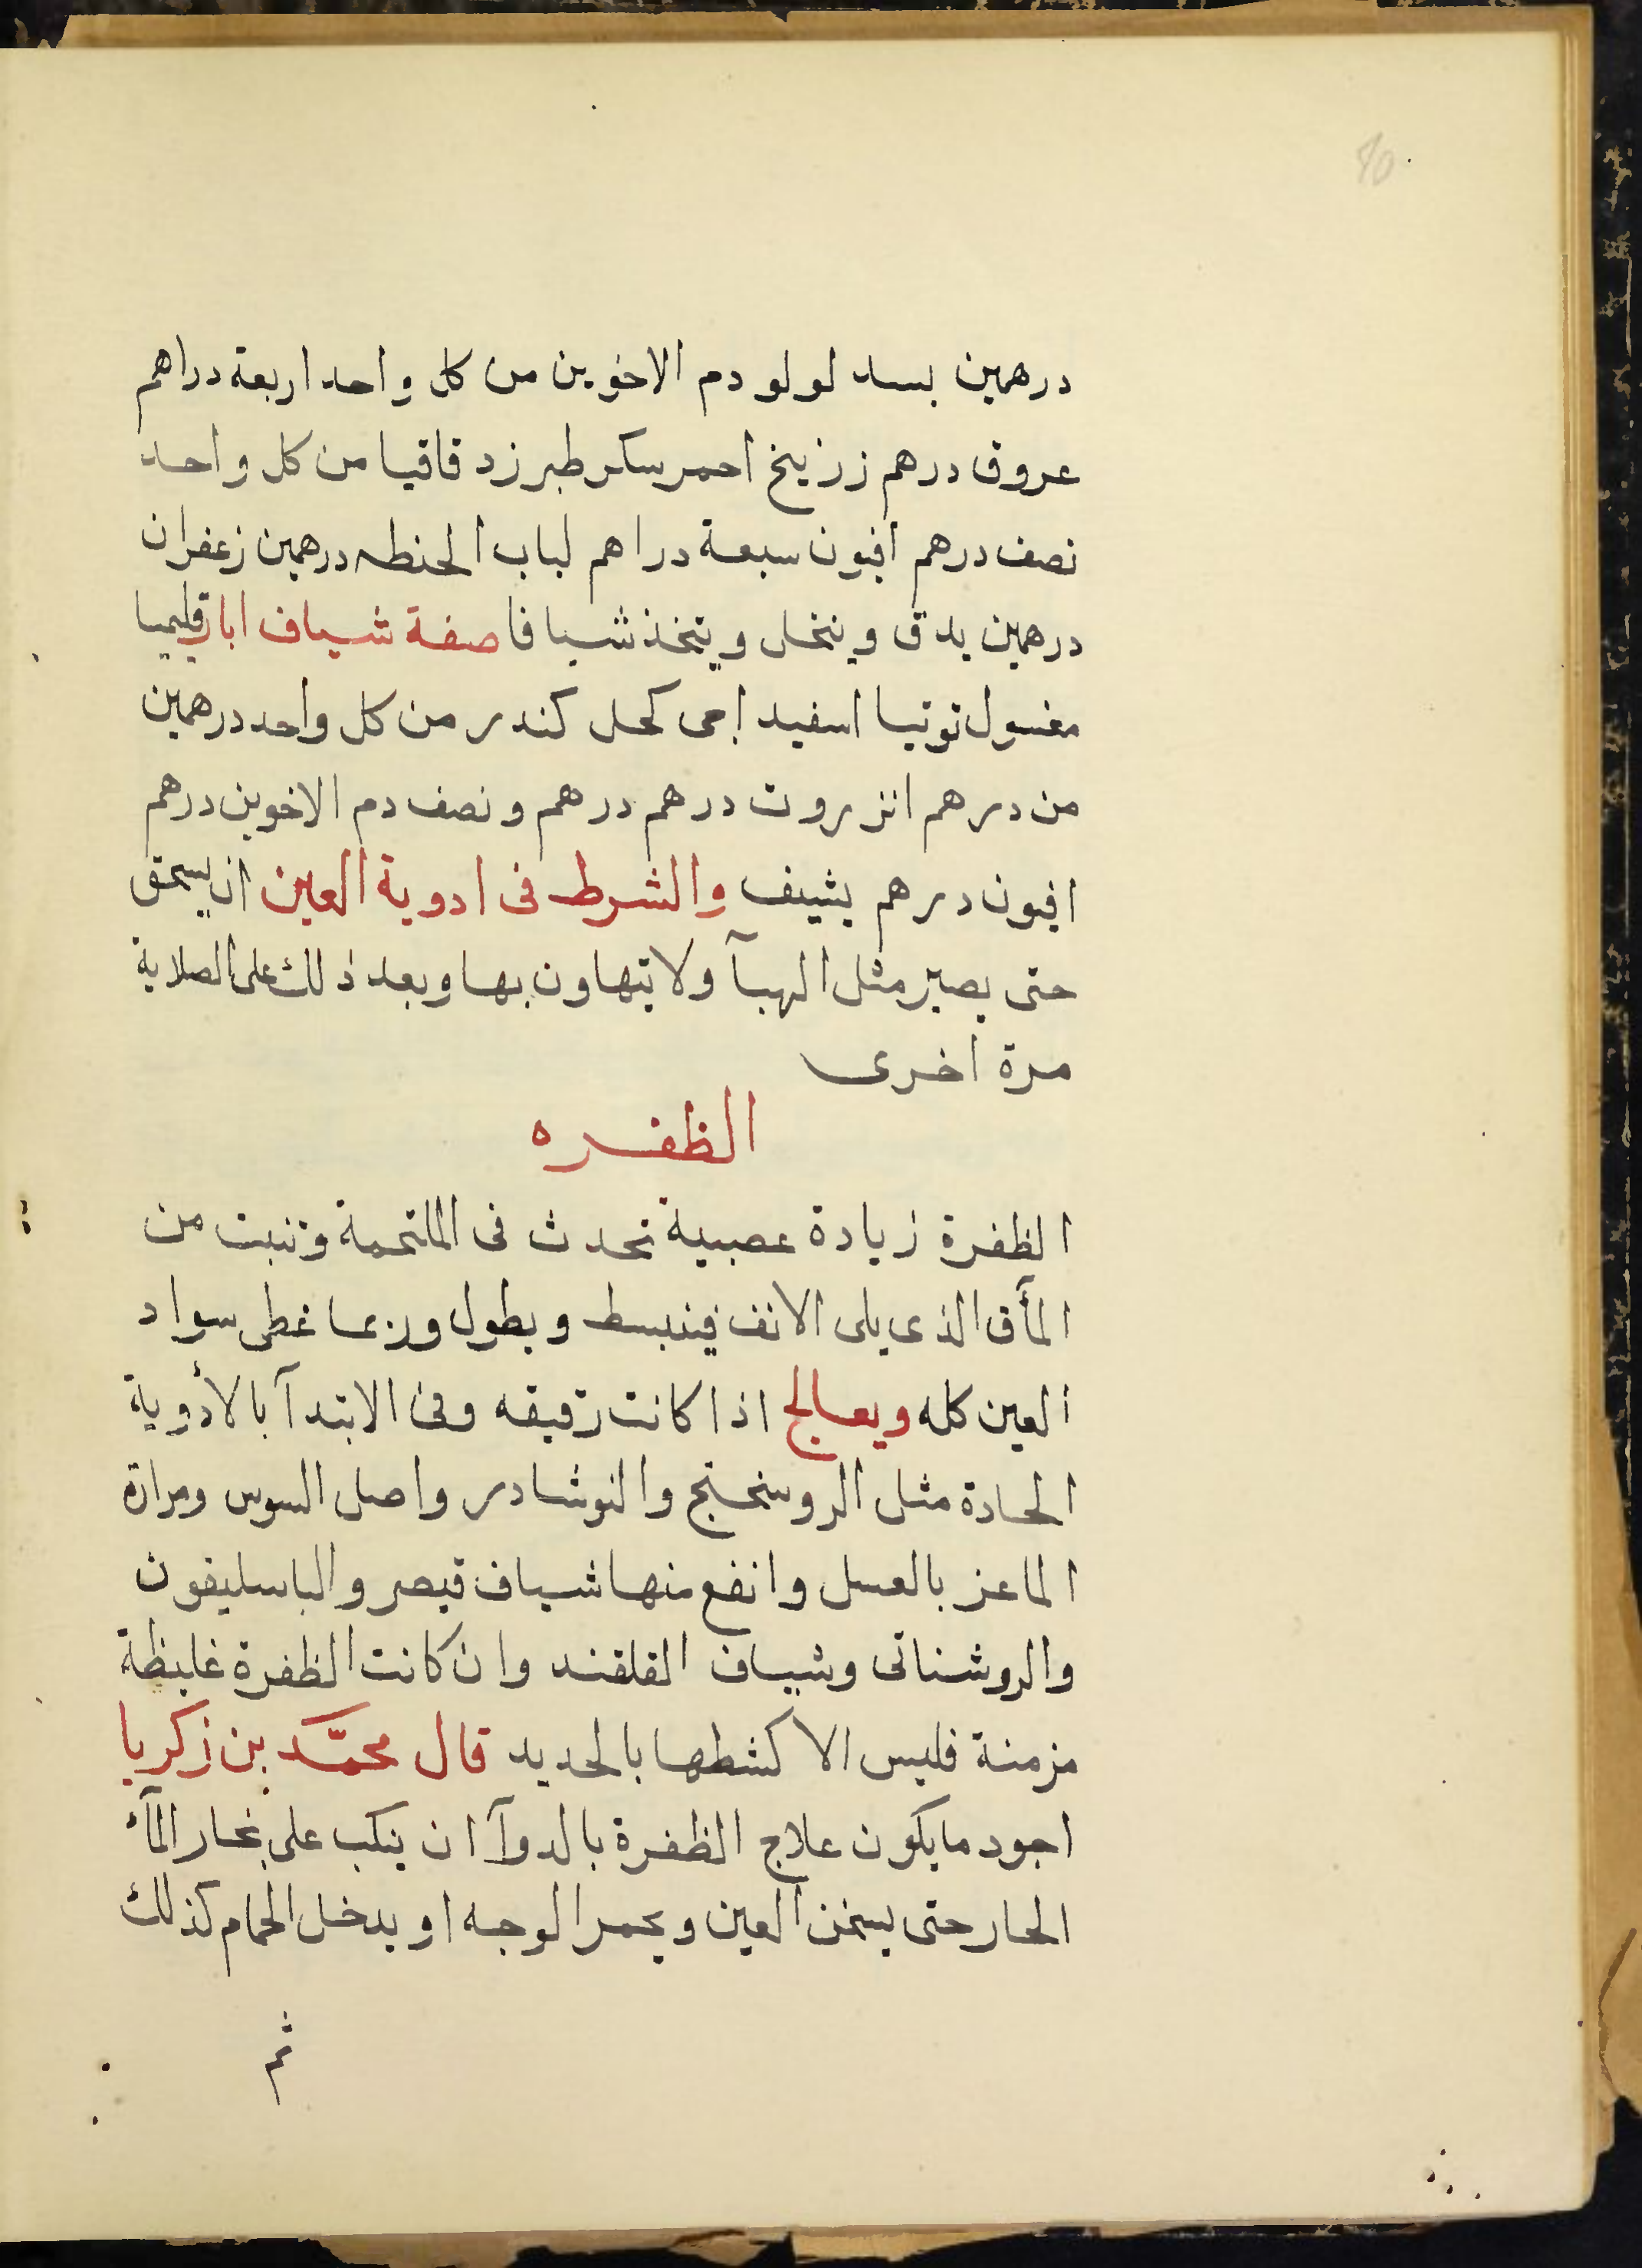 80
درهمين بسد لولو دم الاخوين من كل واحد اربعة دراهم
عروق درهم زرنيخ احمر سكر طبرزد قاقيا من كل واحد
نصف درهم افيون سبعة دراهم لباب الحنطه درهمين زعفران
درهمين يدق وينخل ويتخذ شيافا صفة شياف ابار قليميا
مغسول توتيا اسفيد اجى كحل كندر من كل واحد درهمين
من درهم انزروت درهم درهم ونصف دم الاخوين درهم
افيون درهم يشيف والشرط فى ادوية العين ان يسحق
حتى يصير مثل الهبآ ولا يتهاون بها وبعد ذلك على الصلاية
مرة اخرى
الظفره
الظفرة زيادة عصبية تحدث فى الملتحمة وتنبت من
المأق الذى يلى الانف فينبسط ويطول وربما غطى سواد
العين كله ويعالج اذا كانت رقيقه وفى الابتدآ بالأدوية
الحادة مثل الروسختج والنوشادر واصل السوس ومرارة
الماعز بالعسل وانفع منها شياف قيصر والباسليقون
والروشناتى وشياف القلقند وان كانت الظفرة غليظة
مزمنة فليس الا كشطها بالحديد قال محمّد بن زكريا
اجود ما يكون علاج الظفرة بالدوآ ان ينكب على بخار المآء
الحار حتى يسخن العين ويحمر الوجه او يدخل الحمام كذلك
ثم